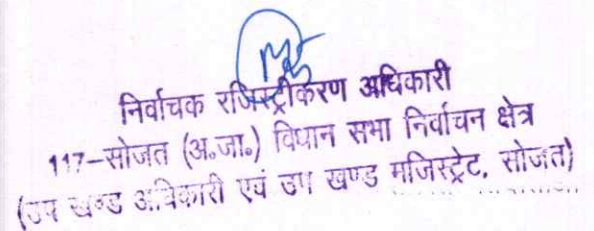 निर्वाचक रजिस्ट्रीकरण अधिकारी
117-सोजत (अ.जा.) विधान सभा निर्वाचन क्षेत्र
(उप खण्ड अधिकारी एवं उप खण्ड मजिस्ट्रेट, सोजत)